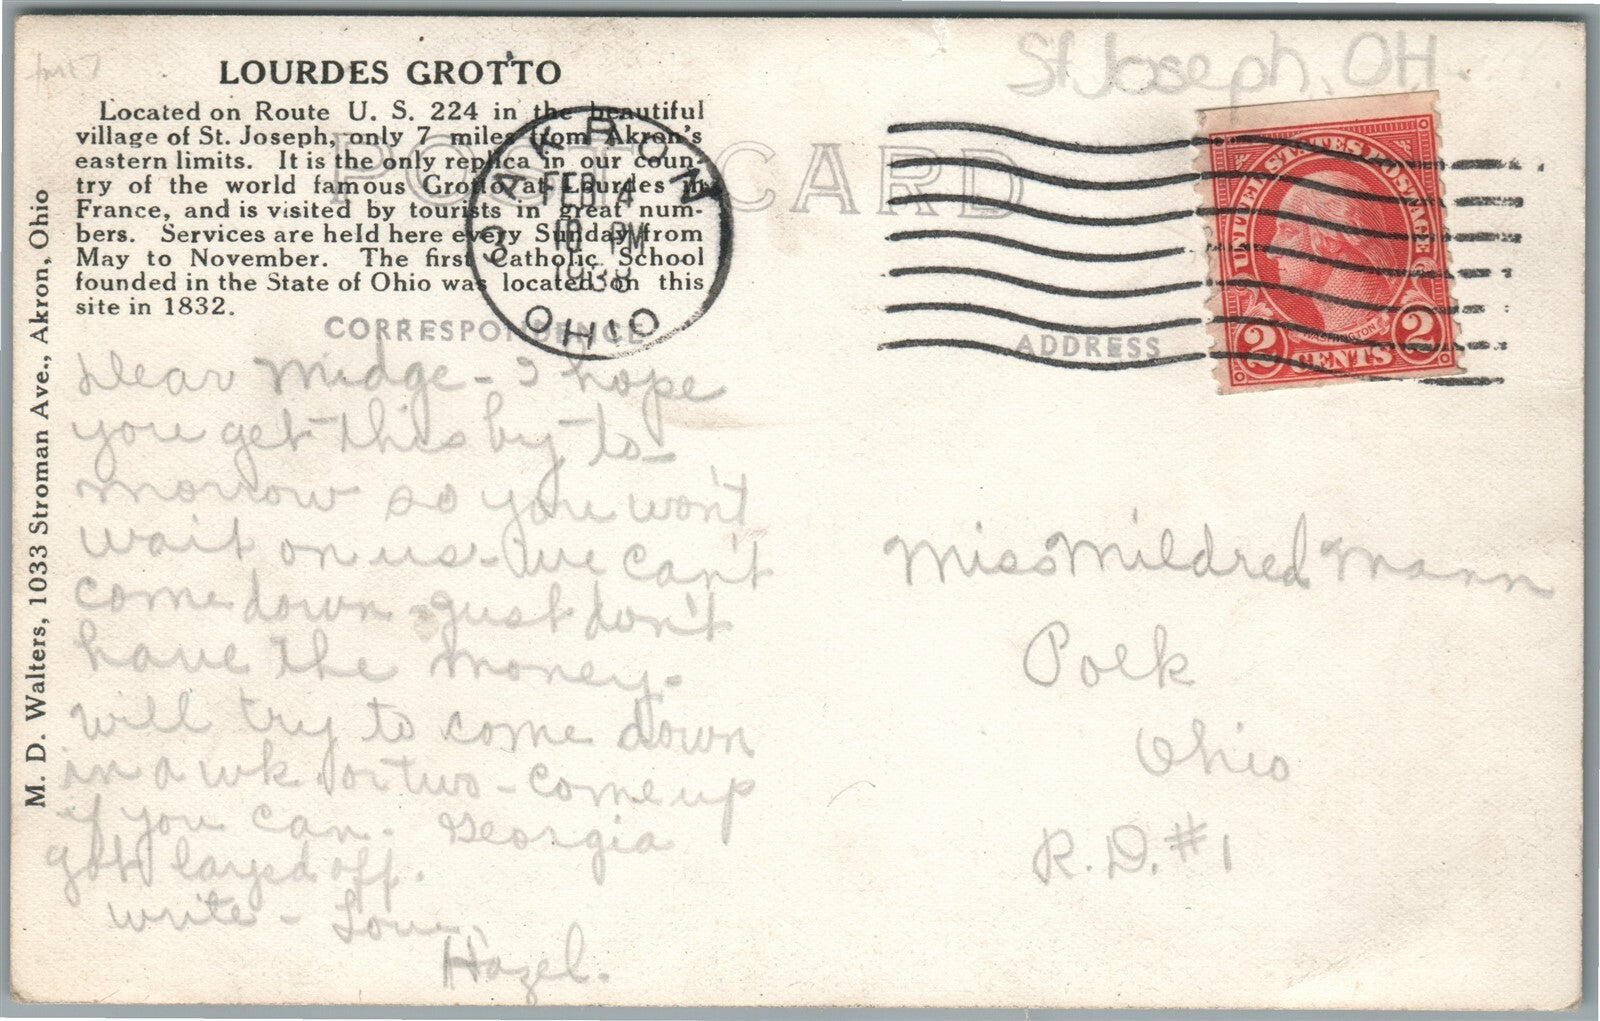 LOURDES GROTTO
Located on Route U. S. 224 in the beautiful
village of St. Joseph, only 7 miles from Akron's
eastern limits. It is the only replica in our coun-
try of the world famous Grotto at Lourdes in
France, and is visited by tourists in great num-
bers. Services are held here every Sunday from
May to November. The first Catholic School
founded in the State of Ohio was located on this
site in 1832.
M. D. Walters, 1033 Stroman Ave., Akron, Ohio
POST CARD
CORRESPONDENCE
ADDRESS
St Joseph, OH
AKRON
3
FEB 14
10 PM
1938
OHIO
UNITED STATES POSTAGE
WASHINGTON
2 CENTS 2
Dear Midge - I hope
you get this by to-
morrow so you won't
wait on us - we can't
come down - just don't
have the money.
will try to come down
in a wk or two - come up
if you can. Georgia
got layed off.
write - Love,
Hazel.
Miss Mildred Mann
Polk
Ohio
R.D. #1